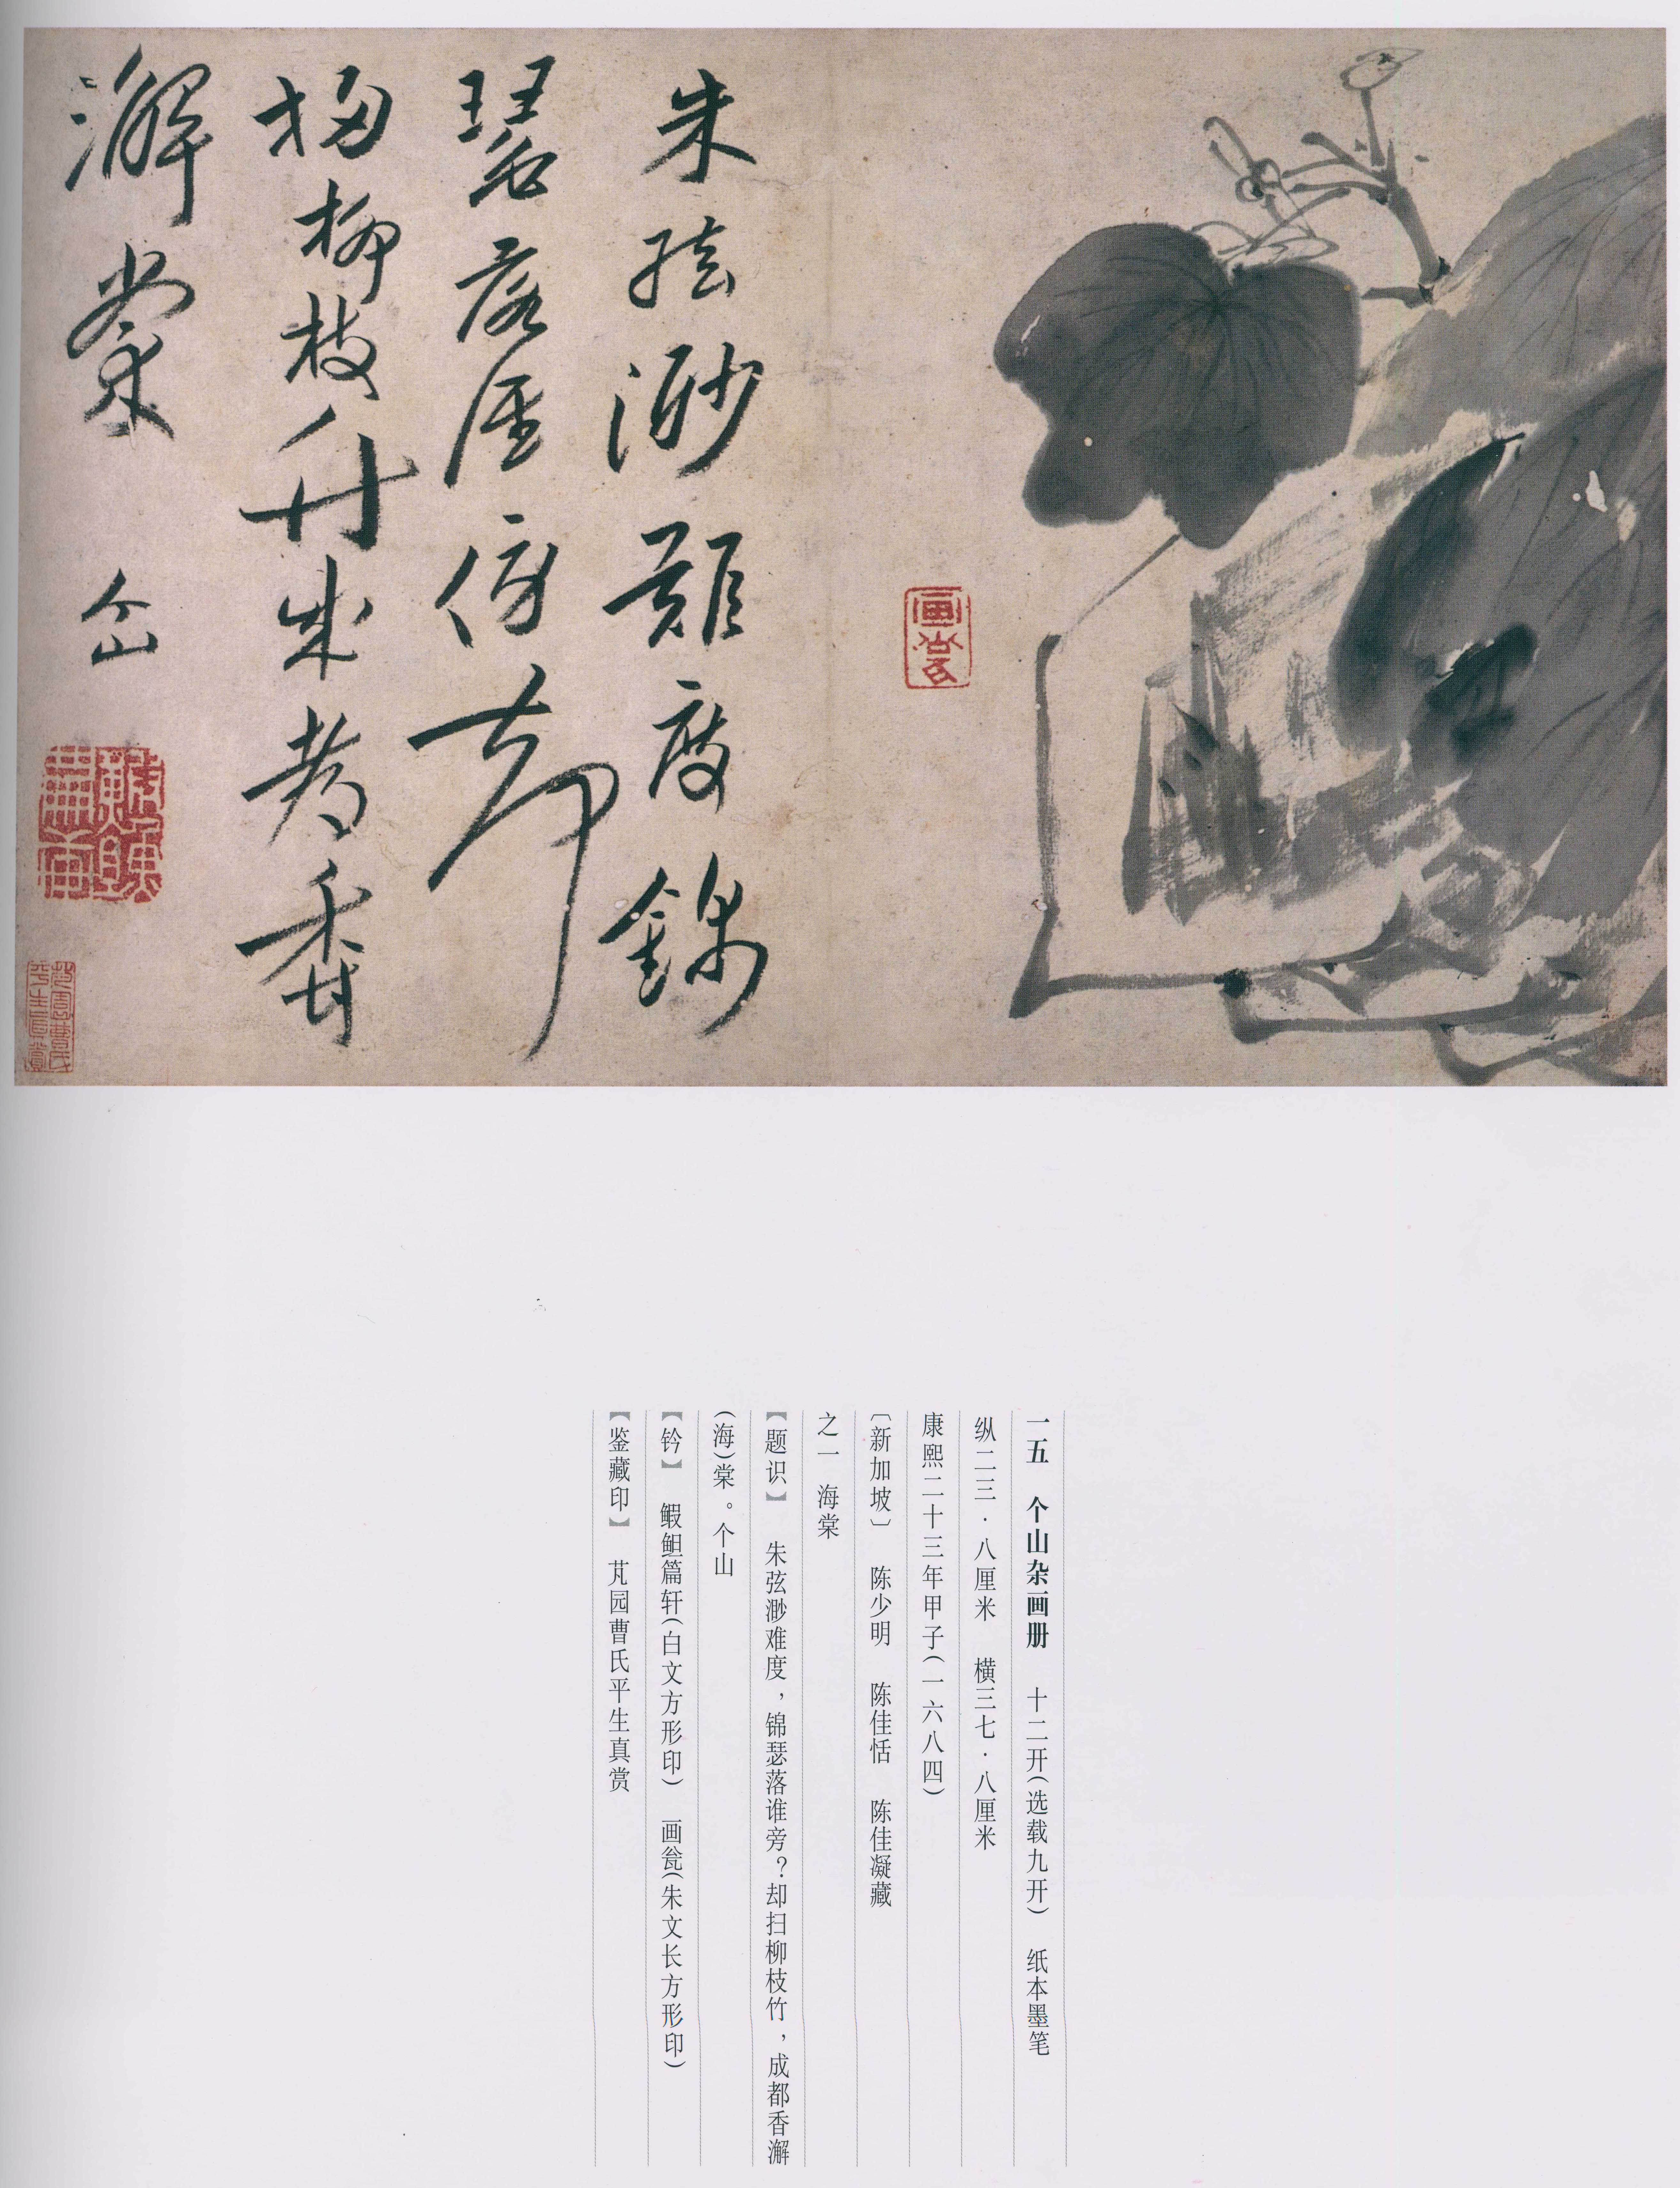 朱弦渺難度錦
瑟落誰傍却
掃柳枝竹成都香
澥棠 个山
画瓮
芃園曹氏
平生真賞
一五 个山杂画册 十二开(选载九开) 纸本墨笔
纵二三·八厘米 横三七·八厘米
康熙二十三年甲子(一六八四)
〔新加坡〕 陈少明 陈佳恬 陈佳凝藏
之一 海棠
【题识】 朱弦渺难度，锦瑟落谁旁？却扫柳枝竹，成都香澥
(海)棠。个山
【钤】 鰕䱇篇轩(白文方形印) 画瓮(朱文长方形印)
【鉴藏印】 芃园曹氏平生真赏